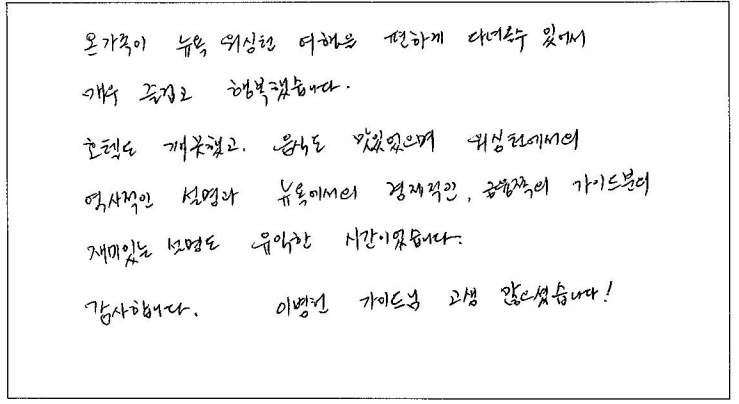 온가족이 뉴욕 워싱턴 여행을 편하게 다녀올수 있어서
매우 즐겁고 행복했습니다.
호텔도 깨끗했고. 음식도 맛있었으며 워싱턴에서의
역사적인 설명과 뉴욕에서의 경제적인, 금융쪽의 가이드분의
재미있는 설명도 유익한 시간이었습니다.
감사합니다. 이병헌 가이드님 고생 많으셨습니다!